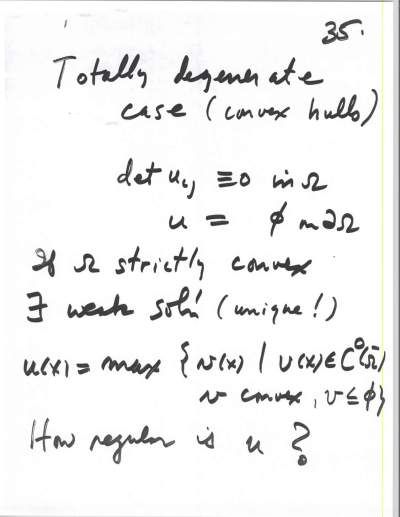 35.
Totally degenerate
case (convex hulls)
det u_ij ≡ 0 in Ω
u = φ in ∂Ω
If Ω strictly convex
∃ weak sol'n (unique!)
u(x) = max { v(x) | v(x) ∈ C⁰(Ω̄)
v convex, v ≤ φ}
How regular is u ?